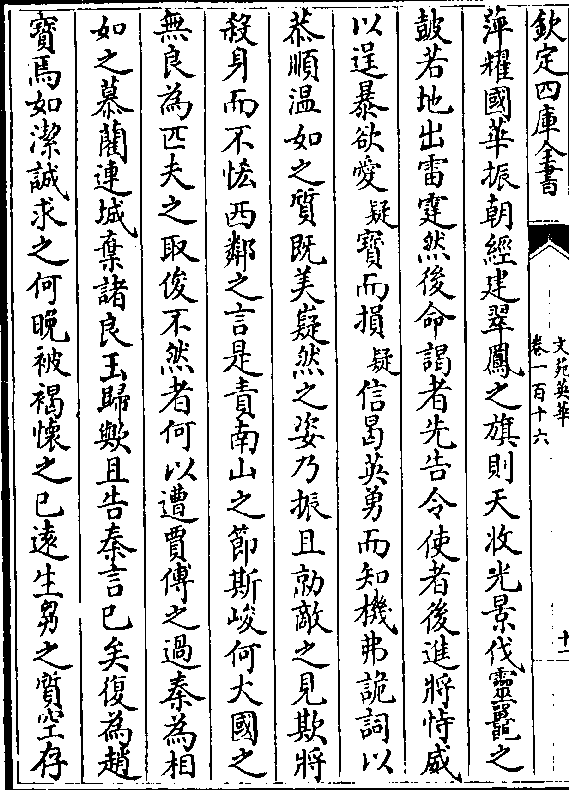 欽定四庫全書
文苑英華
卷一百十六
十二
萍耀國華振朝經建翠鳳之旗則天收光景伐靈鼉之
鼓若地出雷霆然後命謁者先告令使者後進將恃威
以逞暴欲愛疑寳而損疑信曷英勇而知機弗詭詞以
恭順温如之質既美嶷然之姿乃振且勍敵之見欺將
殺身而不恡西鄰之言是責南山之節斯峻何大國之
無良為匹夫之取俊不然者何以遭賈傅之過秦為相
如之慕藺連城棄諸良玉歸歟且告秦言已矣復為趙
寳焉如潔誠求之何晚被褐懷之已逺生芻之質空存